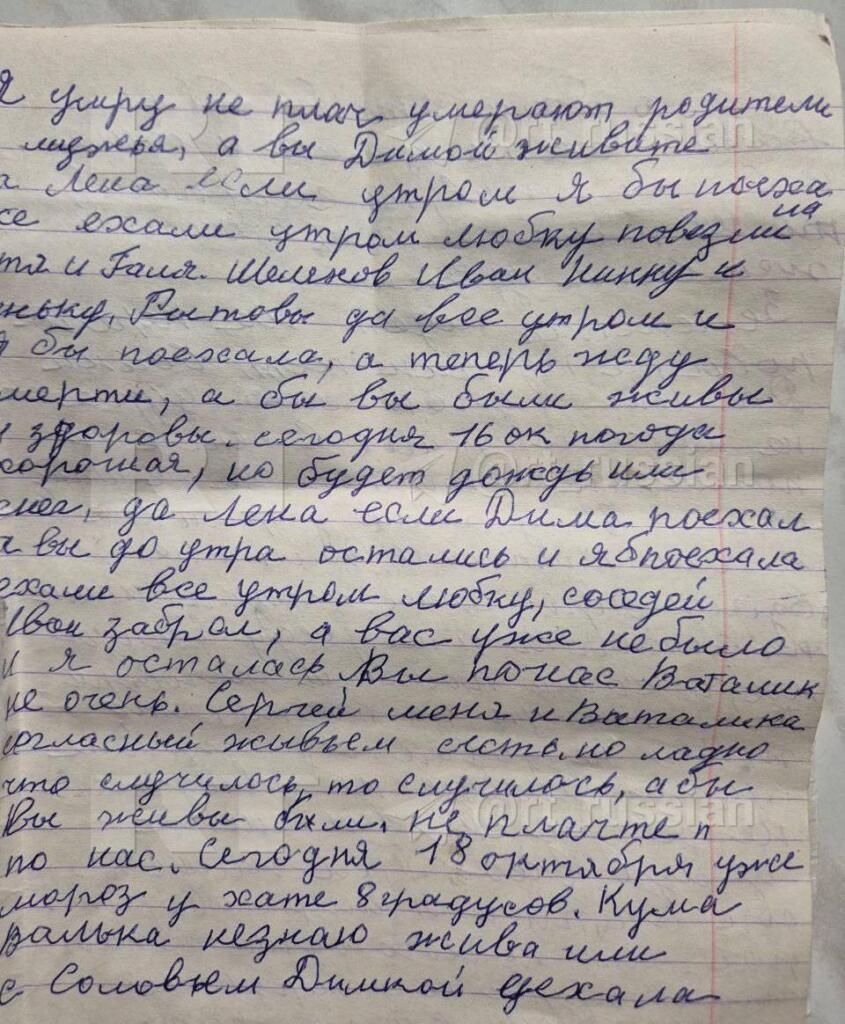 Я умру не плач умерают родители
а вы Димой живите
а Лена если утром я бы поеха
се ехали утром любку повезли на
тя и Галя. Шеленов Иван Нинку и
еньку, Ритовы да все утром и
я бы поехала, а теперь жду
мерти, а бы вы были живы
и здоровы. сегодня 16 ок погода
хорошая, но будет дождь или
снег, да Лена если Дима поехал
а вы до утра остались и я б поехала
ехали все утром любку, соседей
Иван забрал, а вас уже небыло
и я осталась Вы понас Ваталик
не очень. Сергей меня и Ваталика
огласный живьем съесть, но ладно
что случилось, то случилось, абы
Вы живы были, не плачте п
по нас. Сегодня 18 октября уже
мороз у хате 8 градусов. Кума
валька незнаю жива или
с Соловьем Димкой уехала
@rt_russian
@rt_russian
@rt_russian